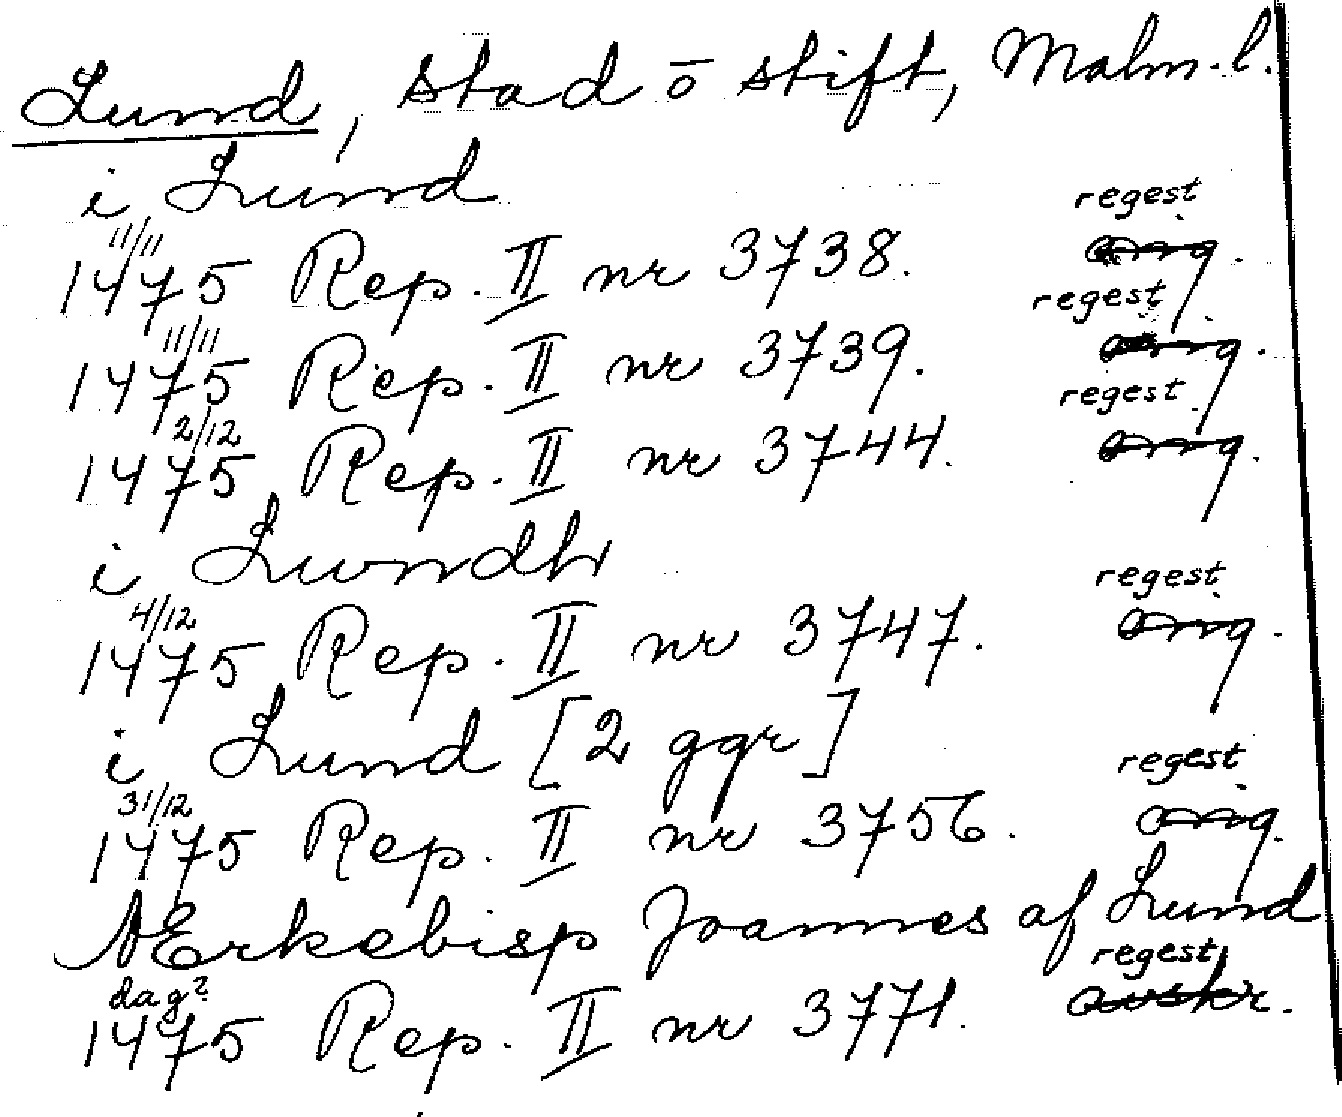 Lund, stad ō stift, Malm.l.
i Lund
11/11 regest
1475 Rep. II nr 3738. orig.
11/11 regest
1475 Rep. II nr 3739. orig.
2/12 regest
1475 Rep. II nr 3744. orig.
i Lwndh
4/12 regest
1475 Rep. II nr 3747. orig.
i Lund [2 ggr]
31/12 regest
1475 Rep. II nr 3756. orig.
Ærkebisp Joannes af Lund
dag? regest
1475 Rep. II nr 3771. avskr.